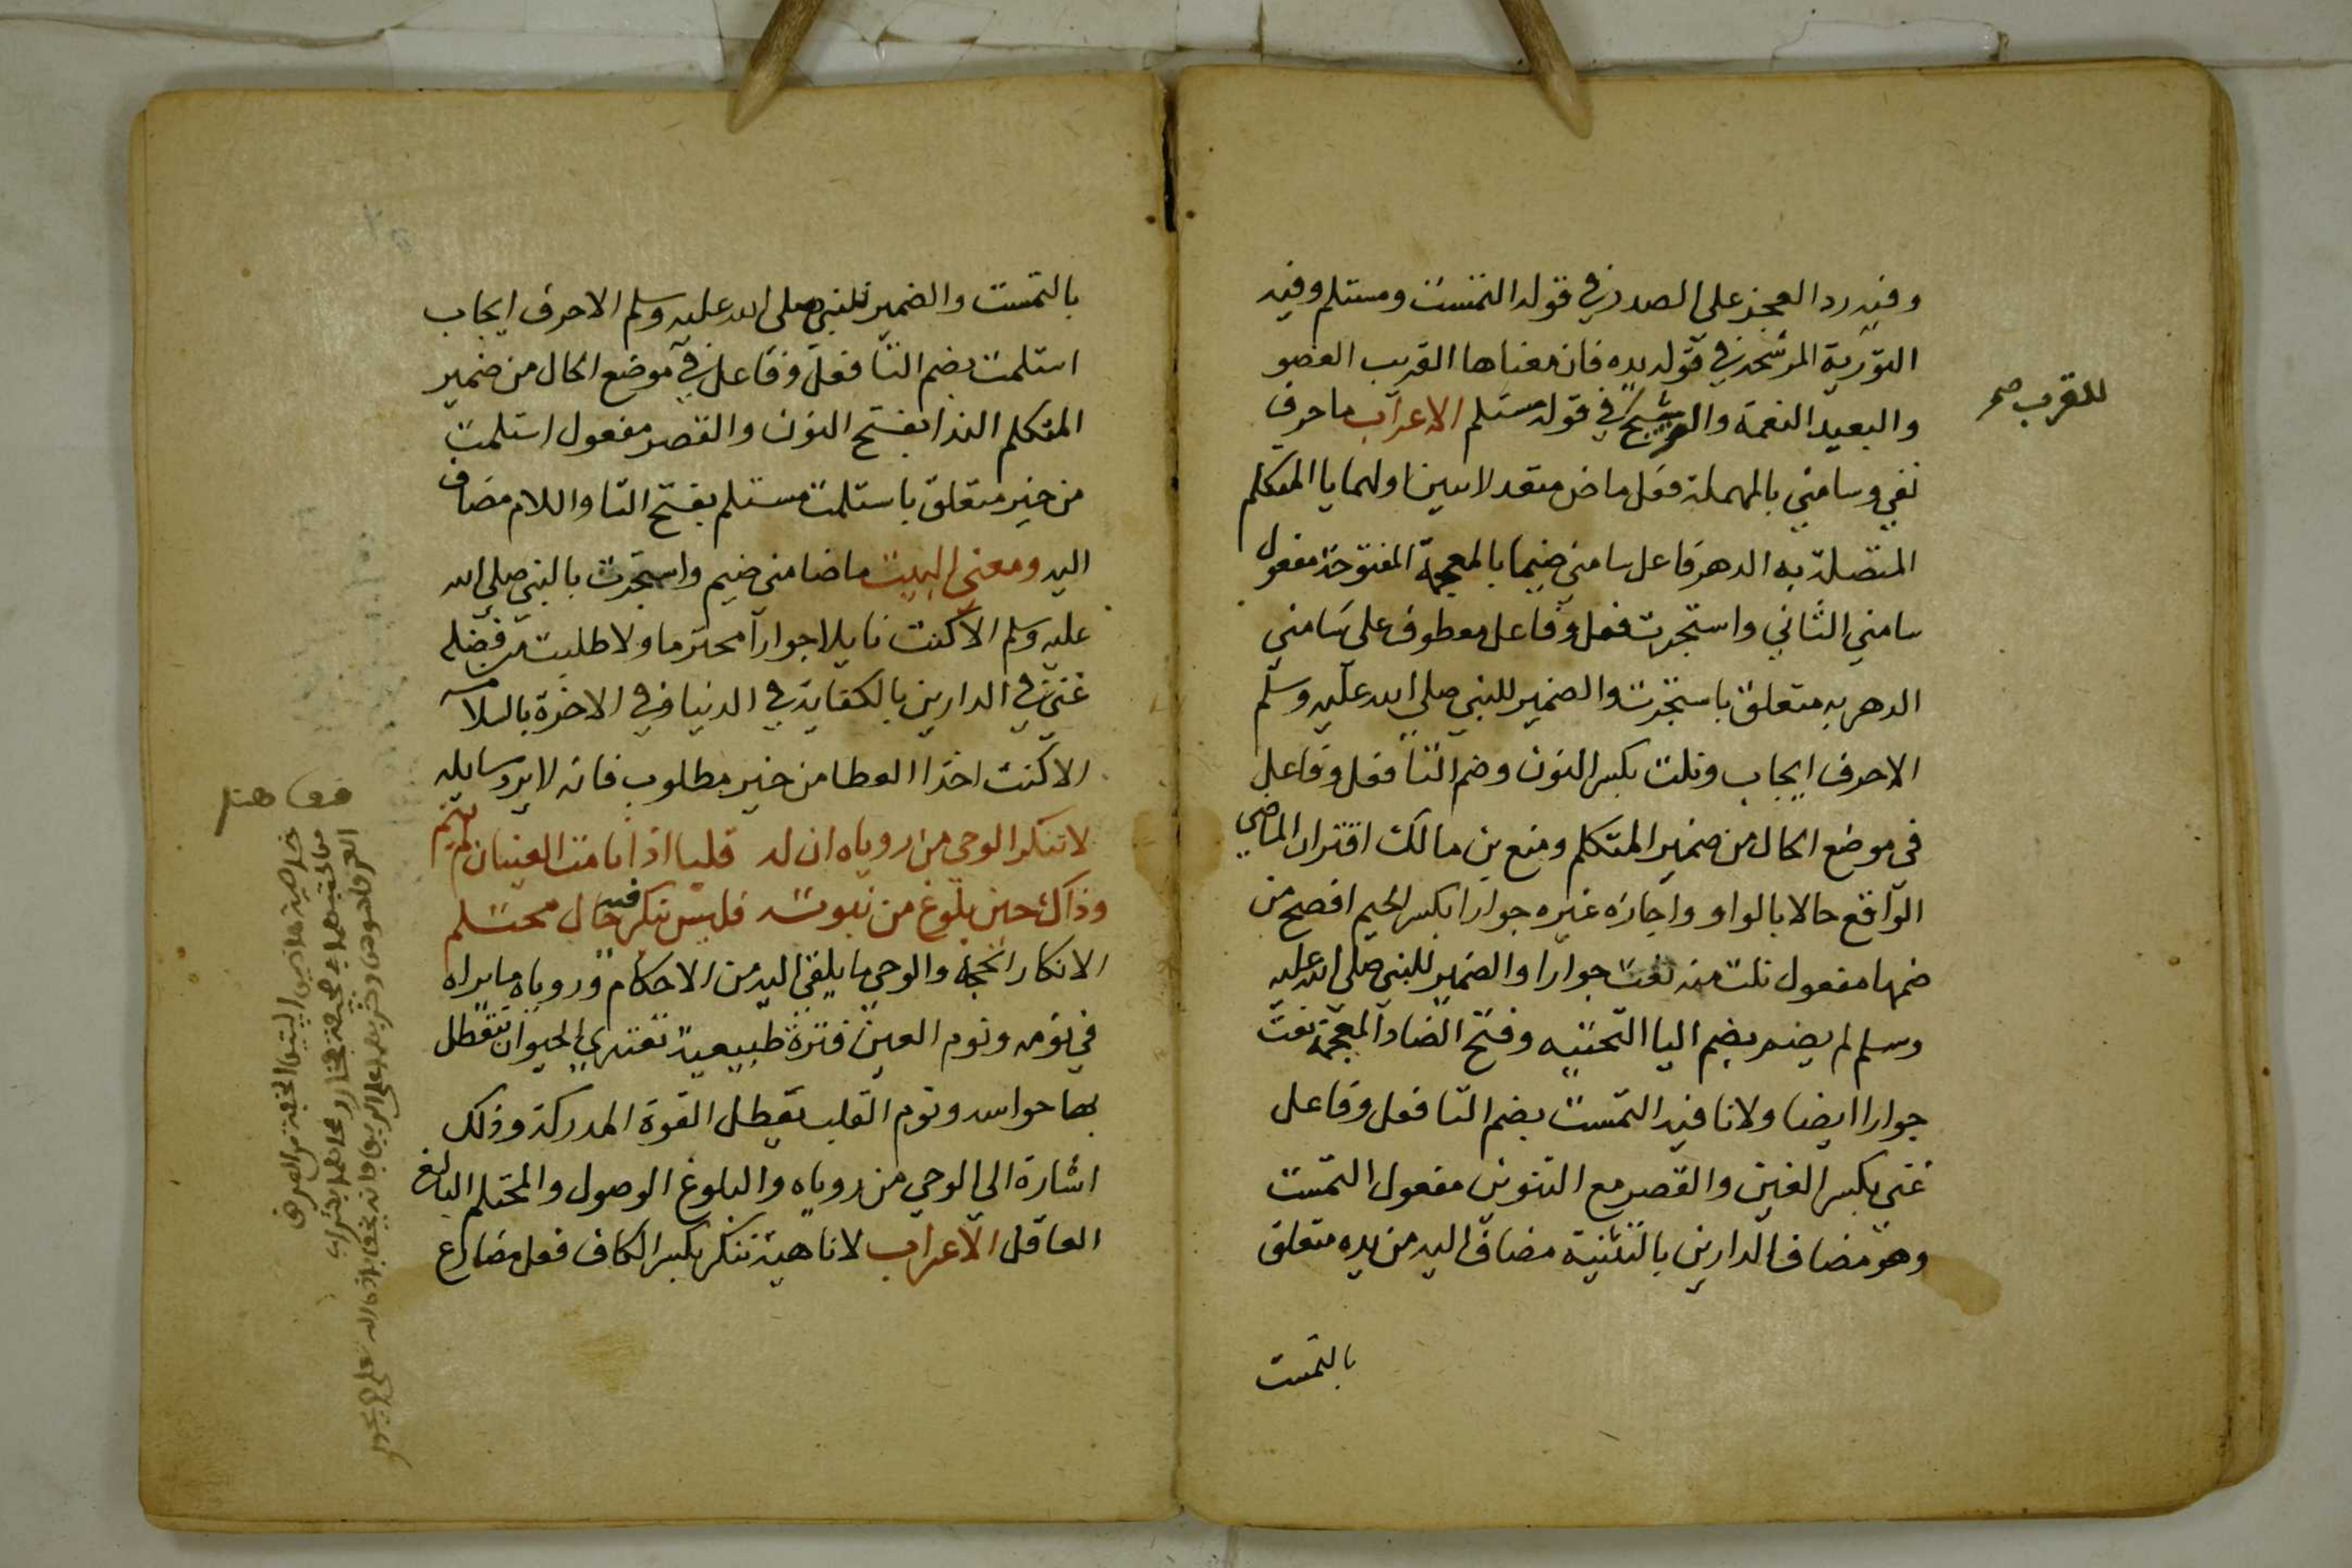 وفيه رد العجز على الصدر في قوله التمست ومستلم وفيه
التورية المرشحة في قوله يده فان معناها القريب العضو
والبعيد النعمة والترشيح في قوله مستلم الاعراب ما حرف
للقرب صح
نفي وسامني بالمهملة فعل ماض متعد لاثنين اولهما يا المتكلم
المتصلة به الدهر فاعل سامني ضيما بالمعجمة المفتوحة مفعول
سامني الثاني واستجرت فعل وفاعل معطوف على سامني
الدهر به متعلق باستجرت والضمير للنبي صلى الله عليه وسلم
الا حرف ايجاب ونلت بكسر النون وضم التا فعل وفاعل
في موضع الحال من ضمير المتكلم ومنع بن مالك اقتران الماضي
الواقع حالا بالواو واجازه غيره جوارا بكسر الجيم افصح من
ضمها مفعول نلت منه نعت جوارا والضمير للنبي صلى الله عليه
وسلم لم يضم بضم اليا التحتيه وفتح الضاد المعجمة نعت
جوارا ايضا ولا نافيه التمست بضم التا فعل وفاعل
غنى بكسر الغين والقصر مع التنوين مفعول التمست
وهو مضاف الدارين بالتثنية مضاف اليه من يده متعلق
بالتمست
بالتمست والضمير للنبي صلى الله عليه وسلم الا حرف ايجاب
استلمت بضم التا فعل وفاعل في موضع الحال من ضمير
المتكلم الندا بفتح النون والقصر مفعول استلمت
من خير متعلق باستلمت مستلم بفتح التا واللام مضاف
اليه ومعنى البيت ما ضامني ضيم واستجرت بالنبي صلى الله
عليه وسلم الا كنت نايلا جوارا محترما ولا طلبت من فضله
غنى في الدارين بالكفاية في الدنيا وفي الاخرة بالسلامه
الا كنت اخذا العطا من خير مطلوب فانه لا يرد سايله
لا تنكر الوحي من روياه ان له قلبا اذا نامت العينان لم ينم
وذاك حين بلوغ من نبوته فليس ينكر فيه حال محتلم
الانكار الجحد والوحي ما يلقى اليه من الاحكام وروياه ما يراه
في نومه ونوم العين فترة طبيعية تعتري الحيوان تتعطل
بها حواسه ونوم القلب تعطل القوة المدركة وذلك
اشارة الى الوحي من روياه والبلوغ الوصول والمحتلم البالغ
العاقل الاعراب لا ناهية تنكر بكسر الكاف فعل مضارع